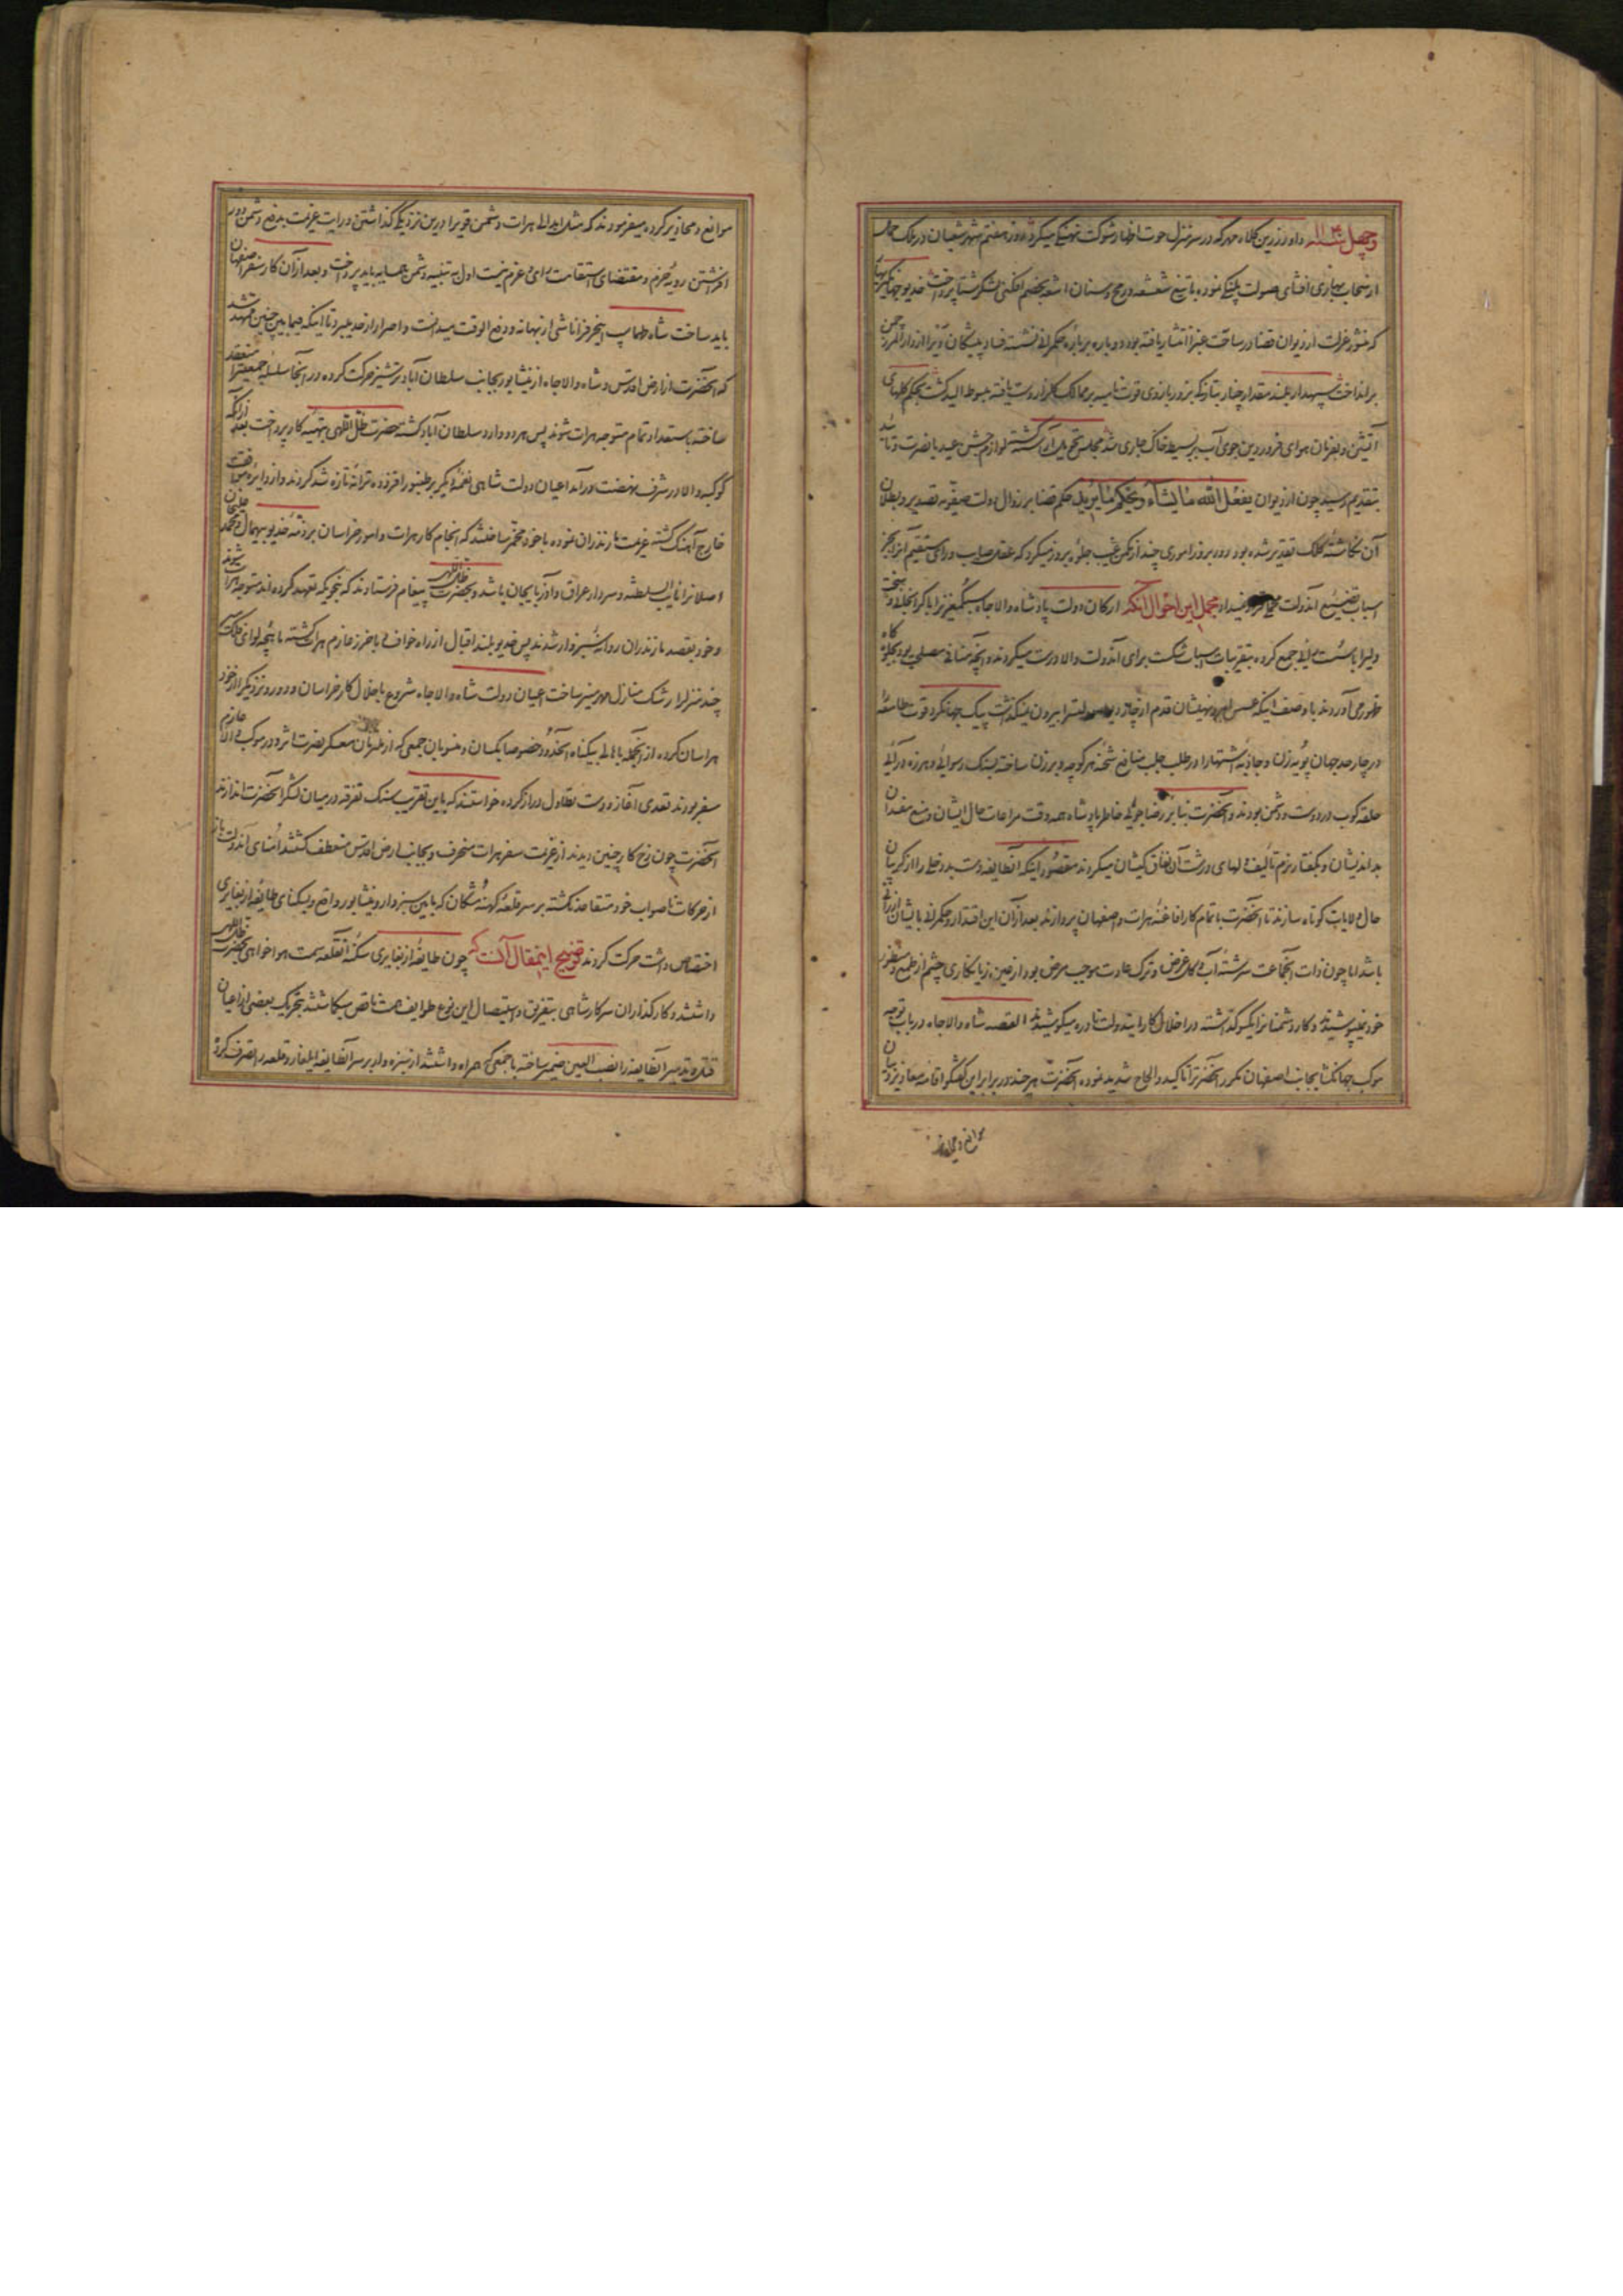 وچهل ۱۱۴۰ داور زرین کلاه مهر که در سرمنزل حوت اظهار شوکت نهنگی میکرد روز هفتم شهر شعبان در ملک حمل
از سحاب بهاری افشای صولت پلنگی نموده با تیغ شعشعه و رمح و سنان اشعه بخصم افکنی لشکر شتا پرداخت خدیو جهانگیر بهار
که منشور عزلت از دیوان قضا در ساحت غبرا انتشار یافته بود دوباره بر باره حکمرانی نشسته فساد پیشگان را از دارالمرز چمن
برانداخت سپهدار بلند مقدار چنار بتازگی بزور بازوی قوت نامیه بر ممالک گلزار دست یافته مبسوط الید گشت بحکم گلهای
آتشین و بفرمان هوای فروردین جوی آب بر بسیط خاک جاری شد مجلس تحویل آراسته گشته لوازم جشن عید با نضرت و تأیید
بتقدیم رسید چون از دیوان یفعل الله ما یشاء ویحکم ما یرید حکم قضا بر زوال دولت صفویه تصدیر و بطلان
آن نگاشته کلک تقدیر شده بود روز بروز اموری چند از مکمن غیب جلوه بروز میکرد که عقل صایب و رای مستقیم از تدابیر
اسباب تضییع آندولت میشد اد مجمل این احوال آنکه ارکان دولت پادشاه والاجاه
ولیرا باسست جمع کرده بتقریبات اسباب شکست برای آندولت والا درست میکردند و آنچه منافی مصلحت بود بجلوه گاه
ظهور می آوردند با وصف اینکه قدم از چادر بیرون نمیگذاشت پیک جهانگرد قوت طامعه
در چار حد جهان پویه زن و جاذبه اشتها را در طلب جلب منافع شحنه هر کوچه و برزن ساخته بسنگ رسوائی و هرزه درآئی
حلقه کوب در دوست و دشمن بودند و آنحضرت بنا بر رضاجوئی خاطر پادشاه همه وقت مراعات حال ایشان و منع مفسدان
بداندیشان و بگفتار نرم تألیف دلهای درشت آن نفاق کیشان میکردند مقصود اینکه آنطایفه دست بدرخلی را از گریبان
حال ولایات کوتاه سازند تا آنحضرت باتمام کار افاغنه هرات و اصفهان پردازند بعد از آن این اقتدار و حکمرانی بایشان ارزانی
باشد اما چون ذات آنجماعت سرشته آب و گل غرض و ترک عادت موجب مرض بود از عین زیانکاری چشم از طمع و منظور
خود نمیپوشیدند و کار دشمنانرا یکسو گذاشته در اخلال کار ایندولت نادره میکوشیدند القصه شاه والاجاه در باب توجه
موکب جهانگشا بجانب اصفهان مکرر آنحضرترا تأکید و الحاح شدید نموده آنحضرت هر چند در برابر این گفتگو اقامه معاذیر و بیان
موانع و محاذیر
موانع و محاذیر کرده میفرمودند که مثل ابدالی هرات دشمن قویرا درین نزدیکی گذاشتن و رایت عزیمت بدفع دشمن دور
افراشتن رویه حزم و مقتضای استقامت رای و عزم نیست اول به تنبیه دشمن همسایه باید پرداخت و بعد از آن کار سفر اصفهان
باید ساخت شاه طهماسب اینحرفرا ناشی از بهانه و دفع الوقت میدانست و اصرار از حد میبرد تا اینکه فیمابین چنین ممهد شد
که آنحضرت از ارض اقدس و شاه والاجاه از نیشابور بجانب سلطان آباد ترشیز حرکت کرده در آنجا سلسله جمعیترا منعقد
ساخته باستعداد تمام متوجه هرات شوند پس هر دو وارد سلطان آباد گشته حضرت ظل اللهی بتهیه کار پرداخت بعد از آنکه
کوکبه والا در شرف نهضت درآمد اعیان دولت شاهی نغمه دیگر بر طنبور افزوده ترانه تازه شد کردند و از دایره موافقت
خارج آهنگ گشته عزیمت مازندران نموده با خود مخمر ساختند که انجام کار هرات و امور خراسان بر ذمه خدیو بیهمال و محمد علیخان
اصلانرا نایب السلطنه و سردار عراق و آذربایجان باشد و بحضرت ظل اللهی پیغام فرستادند که بنحویکه تعهد کرده اند متوجه هرات شوند
و خود بقصد مازندران روانه سبزوار شدند پس خدیو بلند اقبال از راه خواف و باخرز عازم هرات گشته ماهچه لوای ظفرآیت
چند منزلرا رشک منازل مهر منیر ساخت اعیان دولت شاه والاجاه شروع باخلال کار خراسان و دور و نزدیکرا از خود
هراسان کرده از آنجمله باهالی بیگناه آنحدود خصوصا بکسان و منسوبان جمعی که از ملتزمان معسکر نصرت اثر و در موکب والا عازم
سفر بودند تعدی آغاز و دست تطاول دراز کرده خواستند که باین تقریب سنگ تفرقه در میان لشکر آنحضرت اندازند
آنحضرت چون نرخ کار چنین دیدند از عزیمت سفر هرات منحرف و بجانب ارض اقدس منعطف گشتند امنای آندولت باز
از حرکات ناصواب خود متقاعد نگشته بر سر قلعه کهنه مشکان که مابین سبزوار و نیشابور واقع و بسکنای طایفه از بغایری
اختصاص داشت حرکت کردند توضیح اینمقال آنست که چون طایفه از بغایری سکنه آنقلعه سمت هواخواهی بحضرت ظل اللهی
داشتند و کارگذاران سرکار شاهی بتفریق و استیصال این نوع طوایف همت ناقص میگماشتند بتحریک بعضی از اعیان
قتل و تدمیر آنطایفه را نصب العین ضمیر ساخته با جمعی که همراه داشتند از سبزوار بر سر آنطایفه ایلغار و قلعه را تصرف کرده